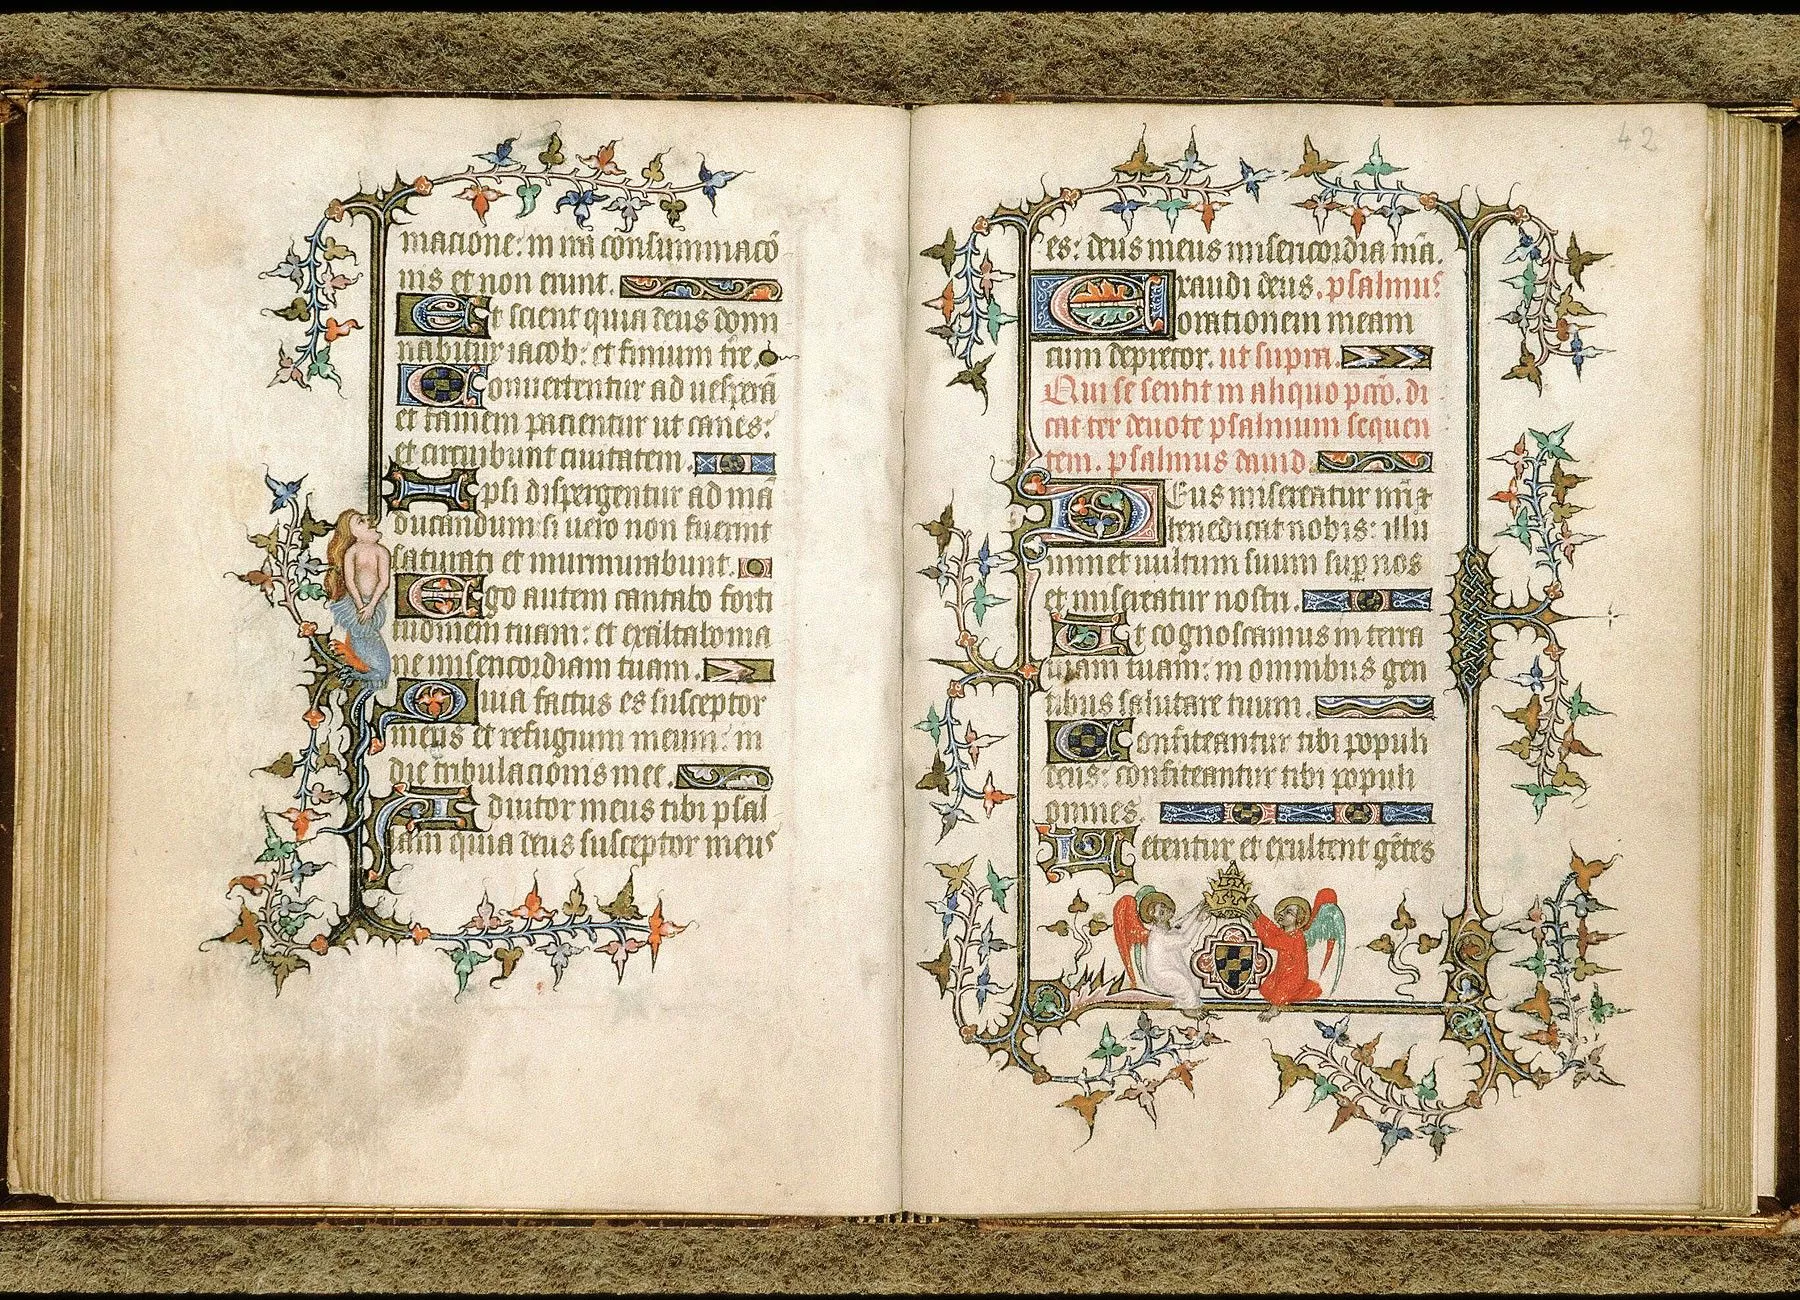 matione: in ira consummacō
nis et non erunt.
Et scient quia deus domi
nabitur iacob: et finium tr̄e.
Conuertentur ad uesperā
et famem pacientur ut canes:
et circuibunt ciuitatem.
Ipsi dispergentur ad mā
ducandum: si uero non fuerint
saturati et murmurabunt.
Ego autem cantabo forti
tudinem tuam: et exaltabo ma
ne misericordiam tuam.
Quia factus es susceptor
meus et refugium meum: in
die tribulacionis mee.
Adiutor meus tibi psal
lam quia deus susceptor meus
42
es: deus meus misericordia mā.
Exaudi deus. psalmus
orationem meam
cum deprecor. ut supra.
Qui se sentit in aliquo pcc̄o. di
cat ter deuote psalmum sequen
tem. psalmus dauid.
Deus misereatur nr̄i ⁊
benedicat nobis: illu
minet uultum suum sup̱ nos
et misereatur nostri.
Et cognoscamus in terra
uiam tuam: in omnibus gen
tibus salutare tuum.
Confiteantur tibi populi
deus: confiteantur tibi populi
omnes.
Letentur et exultent gētes